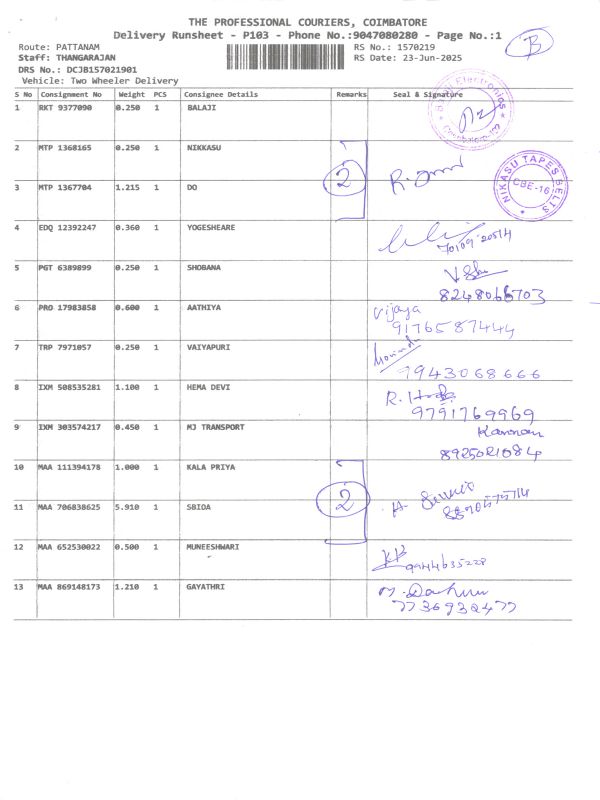 THE PROFESSIONAL COURIERS, COIMBATORE
Delivery Runsheet - P103 - Phone No.:9047080280 - Page No.:1
B
Route: PATTANAM
RS No.: 1570219
Staff: THANGARAJAN
RS Date: 23-Jun-2025
DRS No.: DCJB157021901
Vehicle: Two Wheeler Delivery
S No Consignment No Weight PCS Consignee Details Remarks Seal & Signature
1 RKT 9377090 0.250 1 BALAJI
2 MTP 1368165 0.250 1 NIKKASU
2
NIKASU TAPES BELTS
CBE-16
3 MTP 1367704 1.215 1 DO
4 EDQ 12392247 0.360 1 YOGESHEARE
5 PGT 6389899 0.250 1 SHOBANA
6 PRO 17983858 0.600 1 AATHIYA
Vijaya
9176587444
7 TRP 7971057 0.250 1 VAIYAPURI
7943068666
8 IXM 508535281 1.100 1 HEMA DEVI
9791769969
9 IXM 303574217 0.450 1 MJ TRANSPORT
Kannan
8925021084
10 MAA 111394178 1.000 1 KALA PRIYA
2
11 MAA 706838625 5.910 1 SBIDA
12 MAA 652530022 0.500 1 MUNEESHWARI
9944635228
13 MAA 869148173 1.210 1 GAYATHRI
7736932477